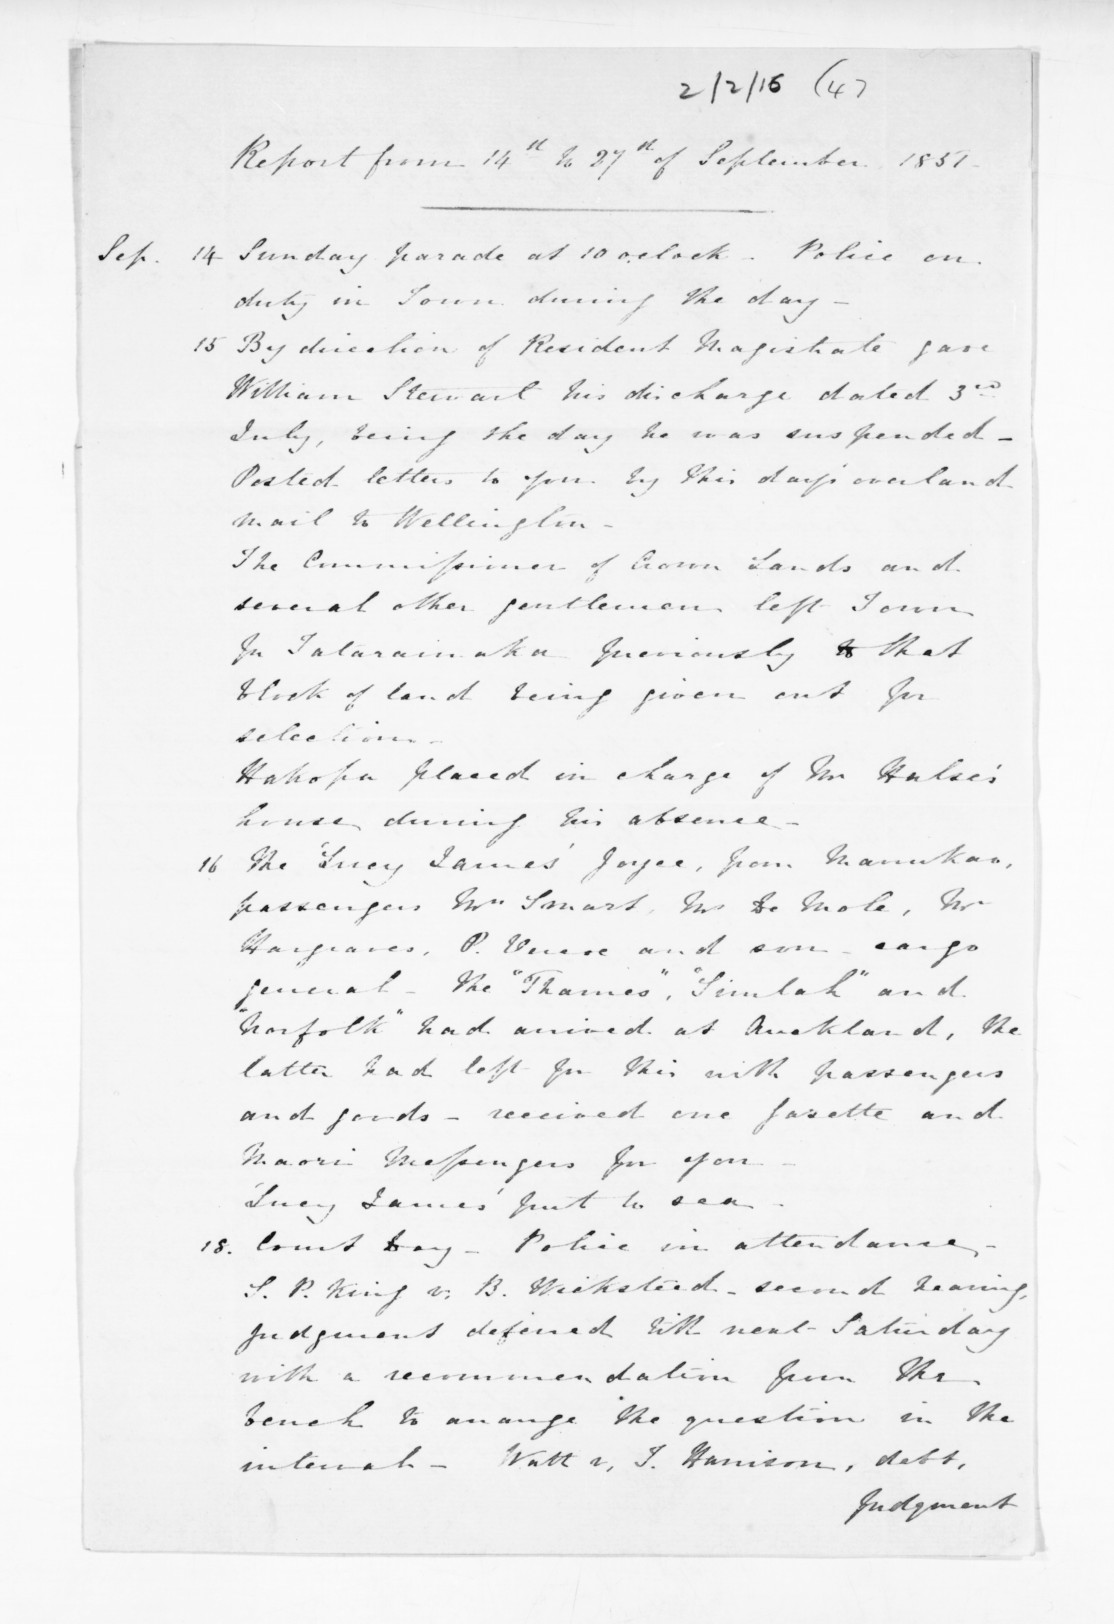 2/2/16 (4)
Report from 14th to 27th of September 1851
Sep. 14 Sunday parade at 10 o'clock - Police on
duty in Town during the day -
15 By direction of Resident Magistrate gave
William Stewart his discharge dated 3rd
July, being the day he was suspended -
Posted letters to you by this day's overland
mail to Wellington -
The Commissioner of Crown Lands and
several other gentlemen left Town
for Tataraimaka previously to that
block of land being given out for
selection -
Hakopa placed in charge of Mr Halse's
house during his absence -
16 The 'Lucy James' Joyce, from Manukau,
passengers Mrs Smart, Mr De Mole, Mr
Hargraves, P. and son - cargo
general - The "Thames", "Simlah" and
"Norfolk" had arrived at Auckland, the
latter had left for this with passengers
and goods - received one Gazette and
Maori Messengers for you -
'Lucy James' put to sea -
18. Court Day - Police in attendance -
S. P. King v. B. Wicksteed - second hearing,
judgment deferred till next Saturday
with a recommendation from the
bench to arrange the question in the
interval - Watt v. T. Harrison, debt,
Judgment